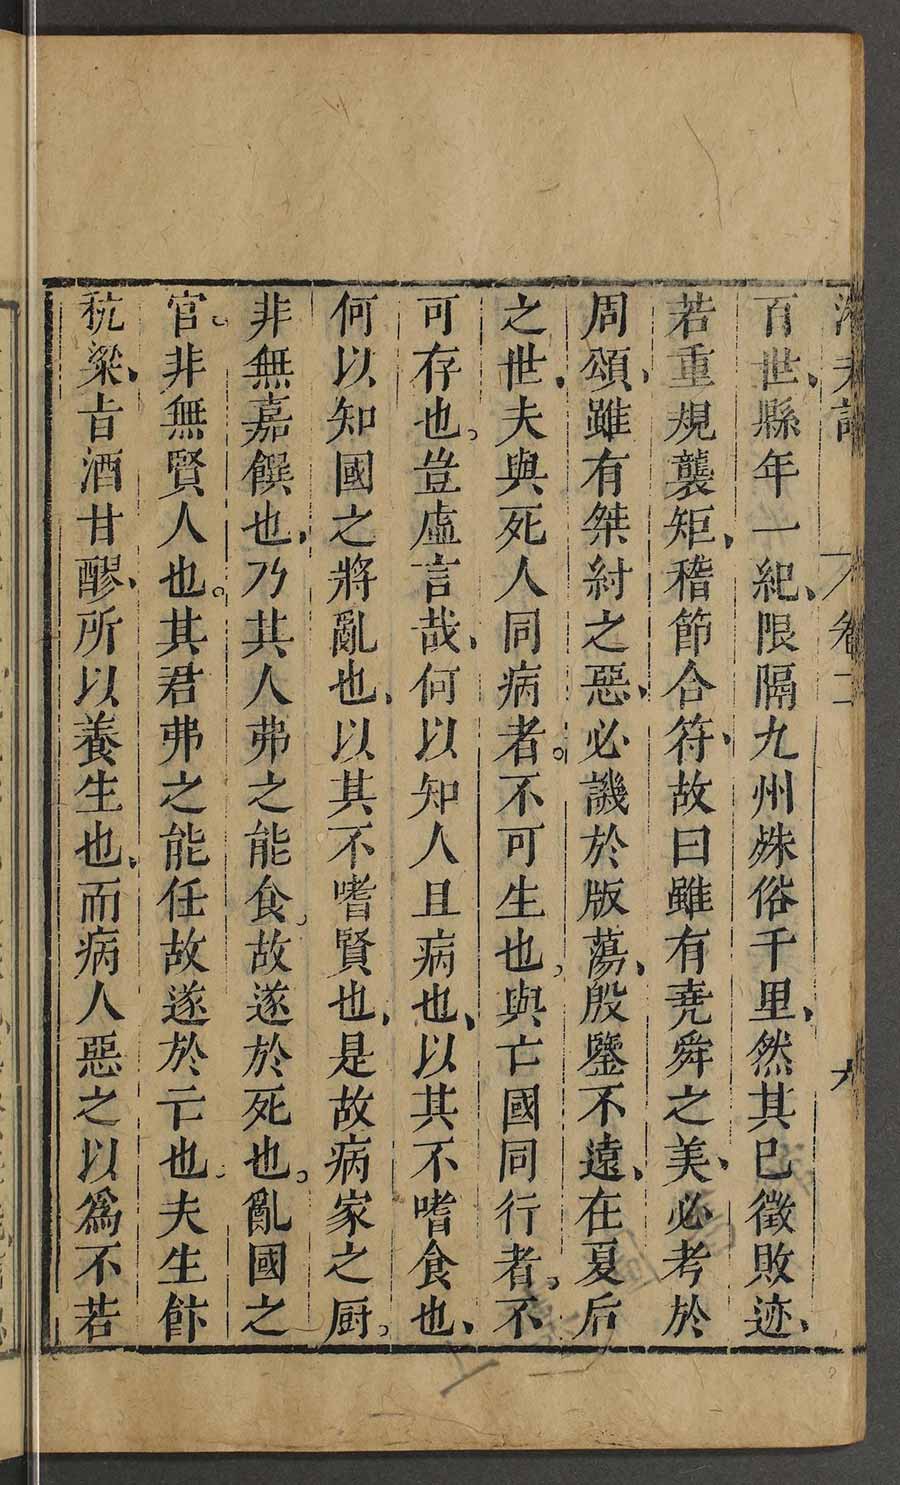 潛夫論 卷二 九
百世、縣年一紀、限隔九州殊俗千里、然其已徵敗迹、
若重規襲矩、稽節合符、故曰雖有堯舜之美、必考於
周頌、雖有桀紂之惡、必譏於版蕩、殷鑒不遠、在夏后
之世、夫與死人同病者。不可生也、與亡國同行者、不
可存也。豈虛言哉、何以知人且病也、以其不嗜食也、
何以知國之將亂也、以其不嗜賢也、是故病家之厨。
非無嘉饌也、乃其人弗之能食、故遂於死也。亂國之
官。非無賢人也。其君弗之能任故遂於亡也、夫生飰
秔粱、旨酒甘醪、所以養生也、而病人惡之以爲不若